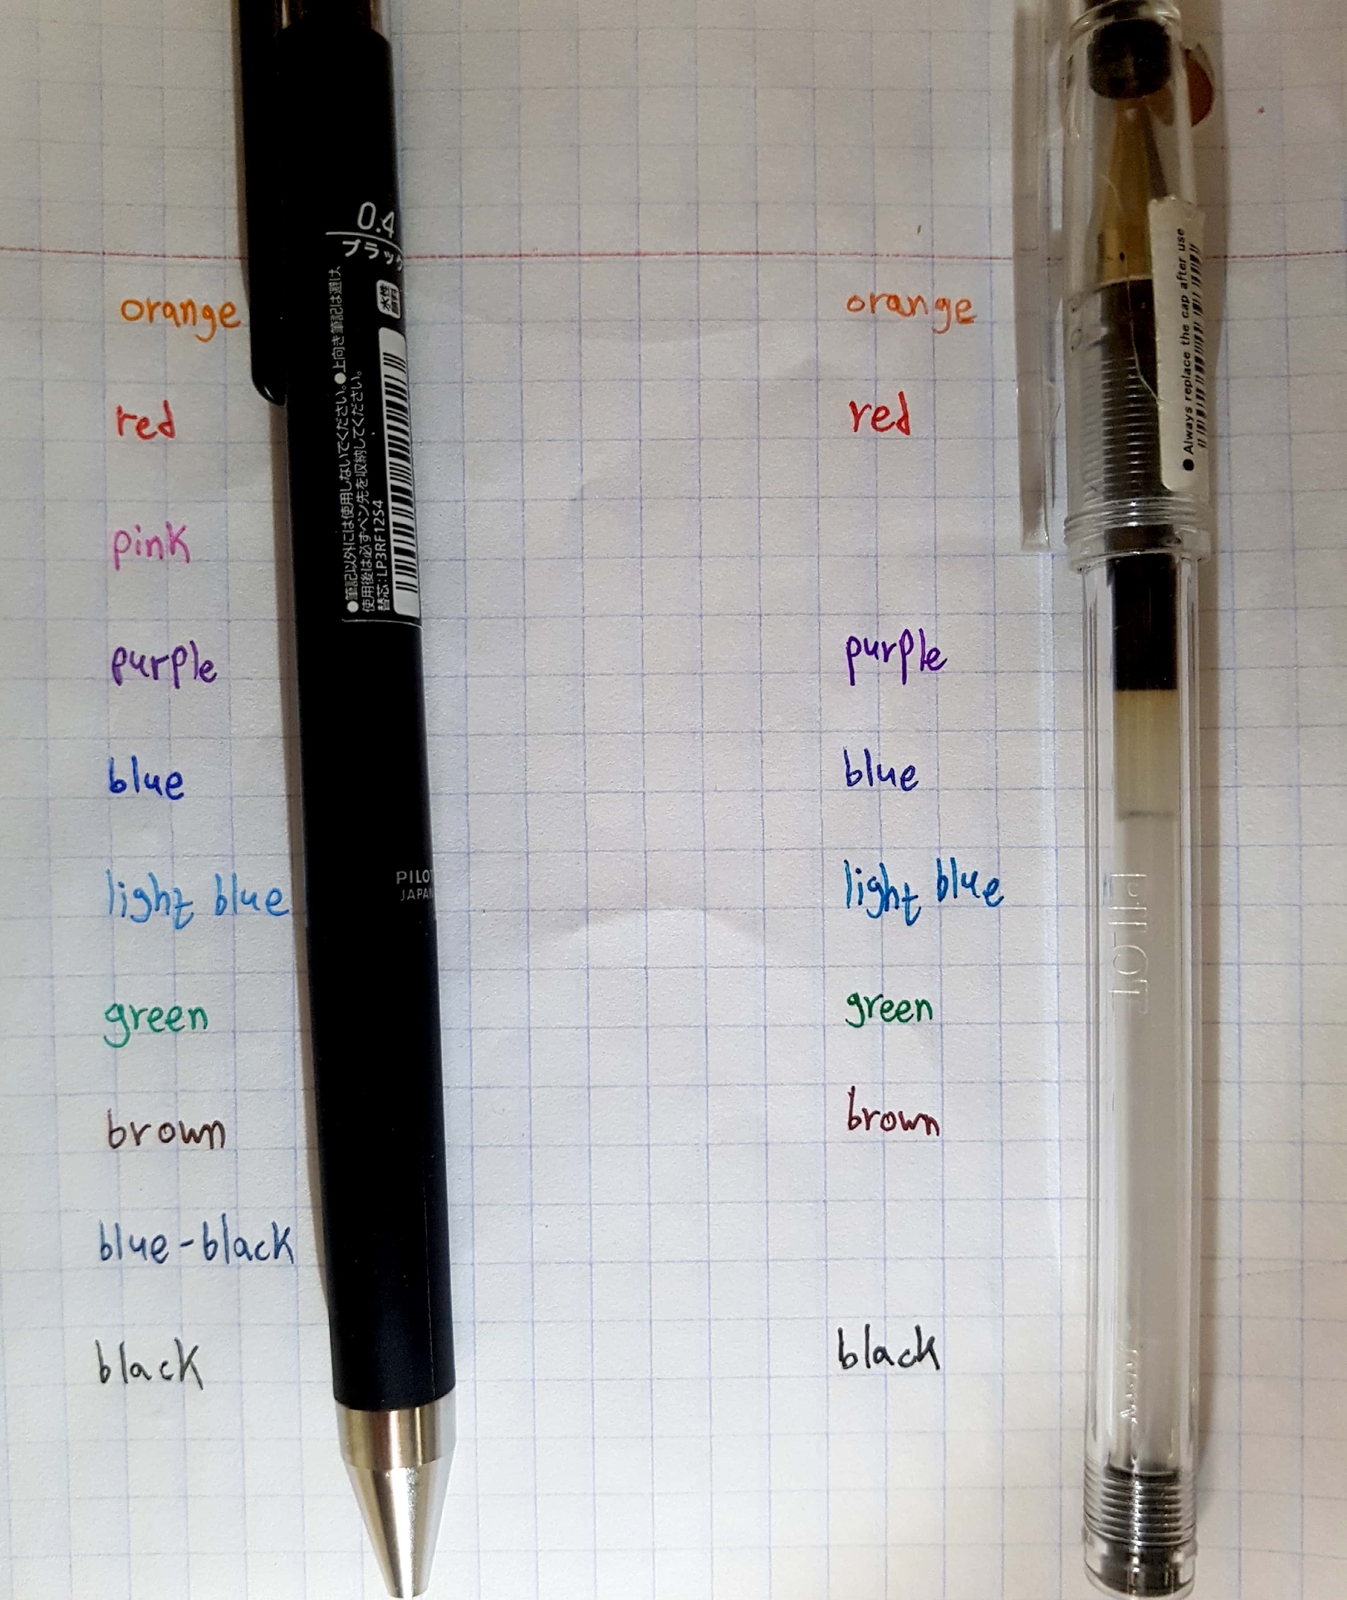 0.4
ブラック
水性
●筆記以外には使用しないでください。●上向き筆記は避け、
使用後は必ずペン先を収納してください。
替芯:LP3RF12S4
PILOT
JAPAN
orange
red
pink
purple
blue
light blue
green
brown
blue-black
black
orange
red
purple
blue
light blue
green
brown
black
● Always replace the cap after use
PILOT